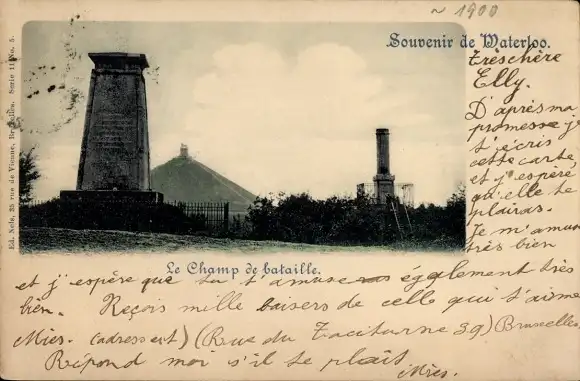 ~ 1900
Souvenir de Waterloo.
Ed. Nels, 25 rue de Vienne, Bruxelles. Serie 11 No. 5.
Trèschère
Elly.
D'après ma
promesse je
t'écris
cette carte,
et j'espère
qu'elle te
plairas.
Je m'amuse
très bien
Le Champ de bataille.
et j'espère que tu t'amuse également très
bien. Reçois mille baisers de celle qui t'aime
Mies. (adresse: ) (Rue du Taciturne 39) Bruxelles
Répond moi s'il te plaît
Mies.